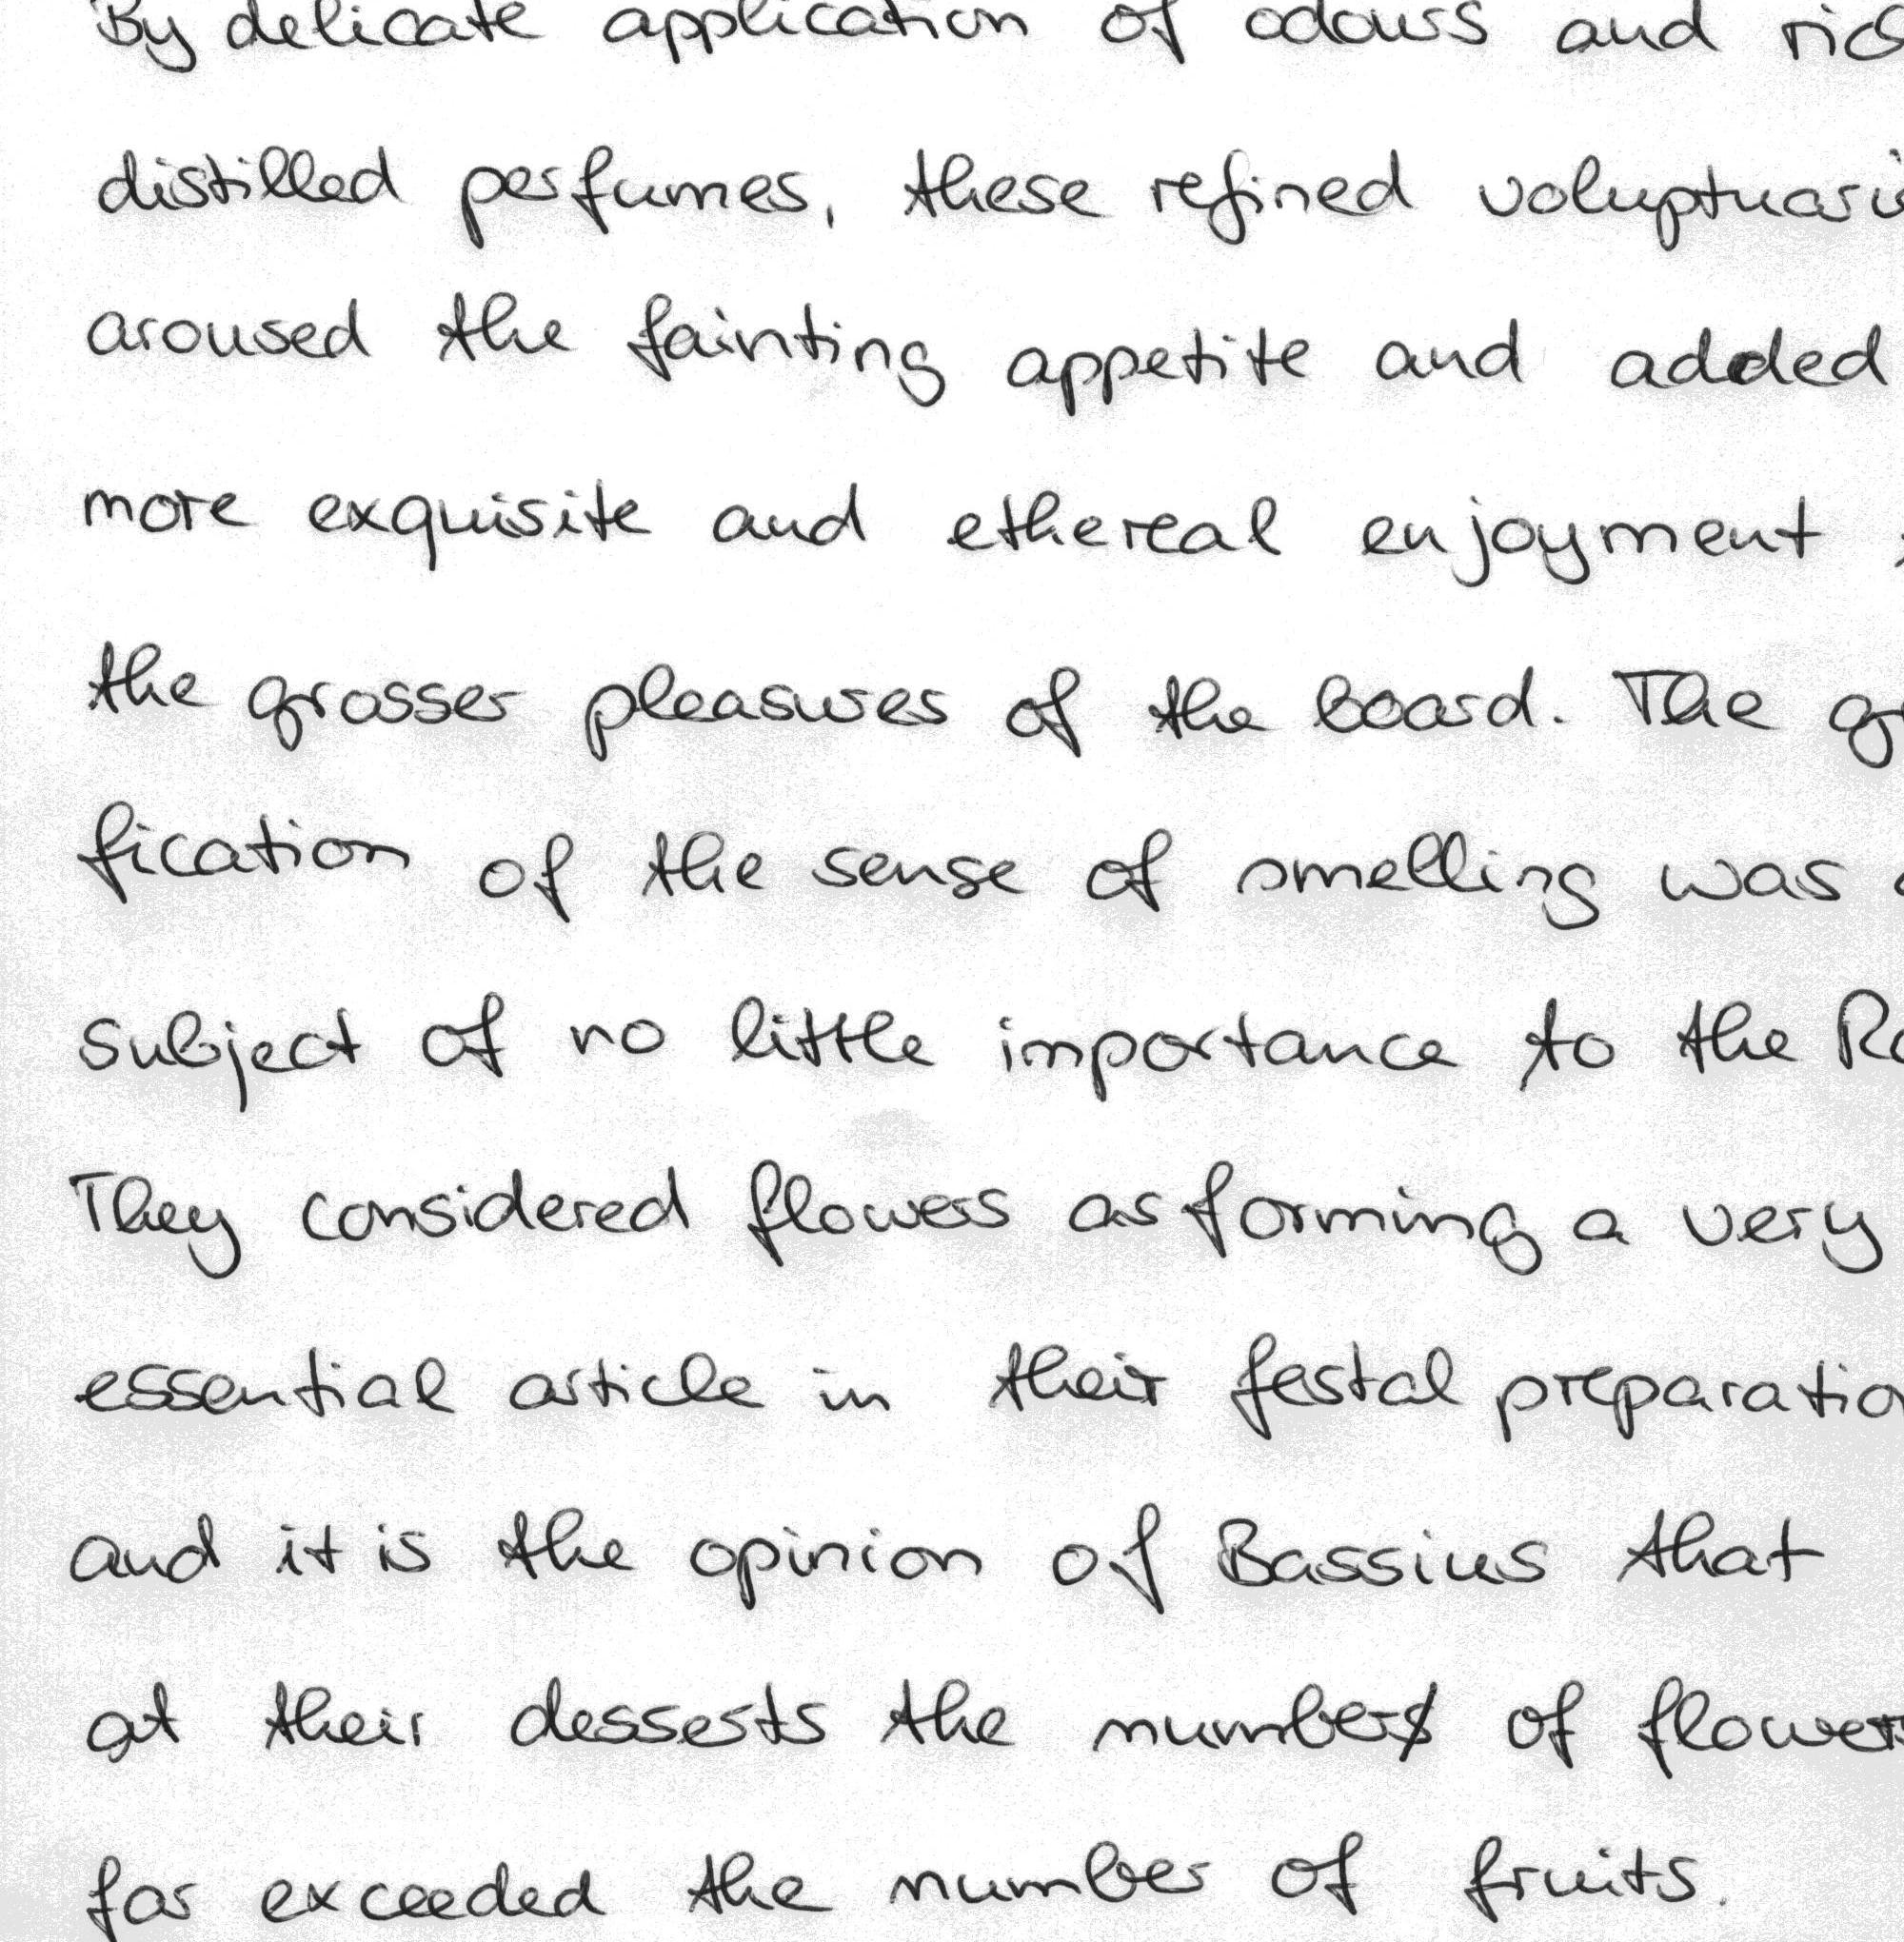 By delicate application of odours and
distilled perfumes, these refined
aroused the fainting appetite and added
more exquisite and ethereal enjoyment
the grosser pleasures of the board. The
fication of the sense of smelling was
subject of no little importance to the
They considered flowers as forming a very
essential article in their festal
and it is the opinion of Bassius that
at their desserts the number of flowers
far exceeded the number of fruits.